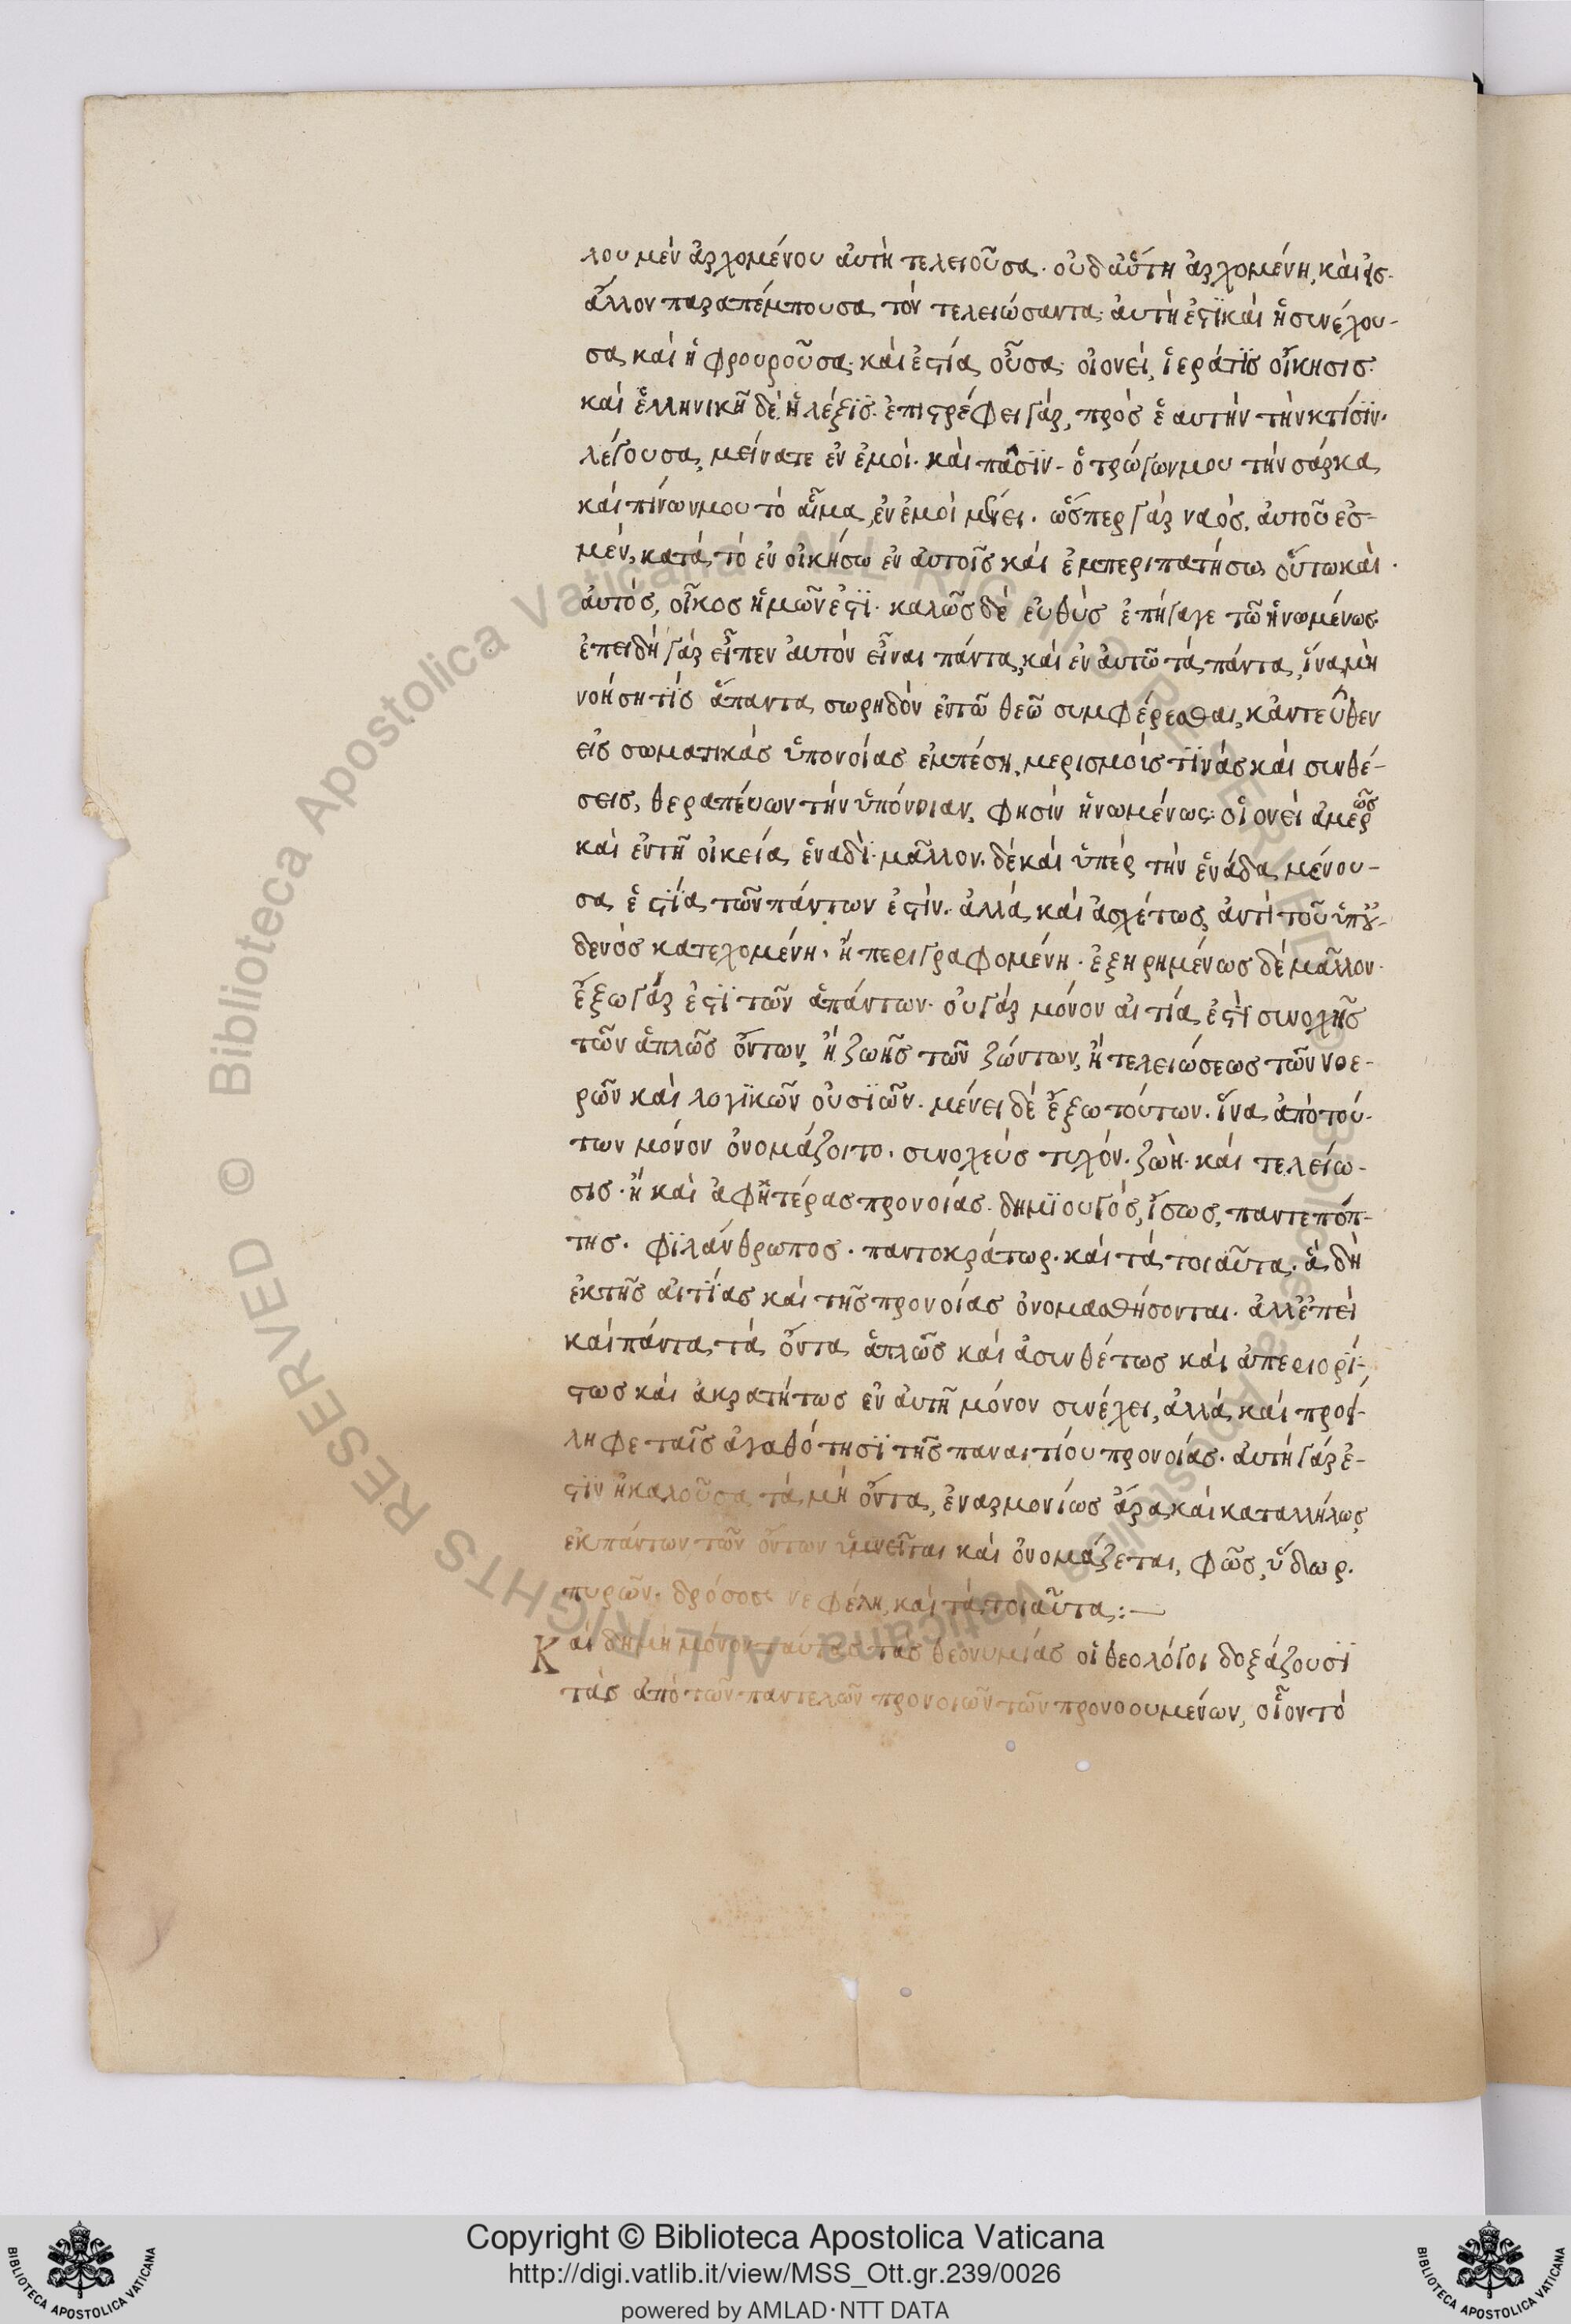 λου μὲν ἀρχομένου αὐτὴ τελειοῦσα· οὐδ αὕτη ἀρχομένη, καὶ εἰσ
ἄλλον παραπέμπουσα τὸν τελειώσαντα· αὐτὴ ἐστὶ καὶ ἡ συνέχου-
σα καὶ ἡ φρουροῦσα· καὶ ἑστία οὖσα· οἱονεὶ, ἱεράτισ οἴκησισ·
καὶ ἑλληνικὴ δὲ ἡ λέξισ· ἐπιστρέφει γὰρ, πρὸσ ἑαυτὴν τὴν κτίσιν·
λέγουσα, μείνατε ἐν ἐμοὶ· καὶ πᾶσιν· ὁ τρώγων μου τὴν σάρκα
καὶ πίνων μου τὸ αἷμα, ἐν ἐμοὶ μένει· ὥσπερ γὰρ ναὸσ, αὐτοῦ ἐσ-
μὲν, κατὰ τὸ ἐν οἰκήσω ἐν αὐτοῖσ καὶ ἐμπεριπατήσω, οὕτω καὶ
αὐτόσ, οἶκοσ ἡμῶν ἐστὶ· καλῶσ δὲ εὐθὺσ ἐπήγαγε τῶ ἡνωμένωσ·
ἐπειδὴ γὰρ εἶπεν αὐτὸν εἶναι πάντα, καὶ ἐν αὐτῶ τὰ πάντα, ἵνα μὴ
νοήση τὶσ ἅπαντα σωρηδὸν ἐν τῶ θεῶ συμφέρεσθαι, κἀντεῦθεν
εἰσ σωματικὰσ ὑπονοίασ ἐμπέση, μερισμοὶσ τινὰσ καὶ συνθέ-
σεισ, θεραπεύων τὴν ὑπόνοιαν, φησὶν ἡνωμένωσ· οἱονεὶ ἀμερῶσ
καὶ ἐν τῆ οἰκεία ἑνάδι· μᾶλλον δὲ καὶ ὑπὲρ τὴν ἑνάδα μένου-
σα ἑστία τῶν πάντων ἐστὶν· ἀλλὰ καὶ ἀσχέτωσ, ἀντὶ τοῦ ὑπ οὐ-
δενὸσ κατεχομένη· ἢ περιγραφομένη· ἐξηρημένωσ δὲ μᾶλλον·
ἔξω γὰρ ἐστὶ τῶν ἁπάντων· οὐ γὰρ μόνον αἰτία ἐστὶ συνοχῆσ
τῶν ἁπλῶσ ὄντων, ἢ ζωῆσ τῶν ζώντων, ἢ τελειώσεωσ τῶν νοε-
ρῶν καὶ λογικῶν οὐσιῶν· μένει δὲ ἔξω τούτων· ἵνα ἀπὸ τού-
των μόνον ὀνομάζοιτο· συνοχεὺσ τυχὸν· ζωὴ· καὶ τελείω-
σισ· ἢ καὶ ἀφ ἡτέρασ προνοίασ· δημιουργόσ, ἴσωσ, παντεπόπ-
τησ· φιλάνθρωποσ· παντοκράτωρ· καὶ τὰ τοιαῦτα· ἃ δὴ
ἐκ τῆσ αἰτίασ καὶ τῆσ προνοίασ ὀνομασθήσονται· ἀλλ ἐπεὶ
καὶ πάντα τὰ ὄντα ἁπλῶσ καὶ ἀσυνθέτωσ καὶ ἀπεριορί-
στωσ καὶ ἀκρατήτωσ ἐν αὐτῆ μόνον συνέχει, ἀλλὰ καὶ προεί-
ληφε ταῖσ ἀγαθότησι τῆσ παναιτίου προνοίασ· αὐτὴ γὰρ ἐ-
στὶν ἡ καλοῦσα τὰ μὴ ὄντα, ἐναρμονίωσ ἄρα καὶ καταλλήλωσ
ἐκ πάντων τῶν ὄντων ὑμνεῖται καὶ ὀνομάζεται, φῶσ, ὕδωρ·
πυρῶν· δρόσοσ νεφέλη, καὶ τὰ τοιαῦτα:—
Καὶ δὴ μὴ μόνον ταύτασ τὰσ θεονυμίασ οἱ θεολόγοι δοξάζουσι
τὰσ ἀπὸ τῶν παντελῶν προνοιῶν τῶν προνοουμένων, οἷον τὸ
Copyright © Biblioteca Apostolica Vaticana
http://digi.vatlib.it/view/MSS_Ott.gr.239/0026
powered by AMLAD·NTT DATA
BIBLIOTECA APOSTOLICA VATICANA
BIBLIOTECA APOSTOLICA VATICANA
© Biblioteca Apostolica Vaticana ALL RIGHTS RESERVED
© Biblioteca Apostolica Vaticana ALL RIGHTS RESERVED